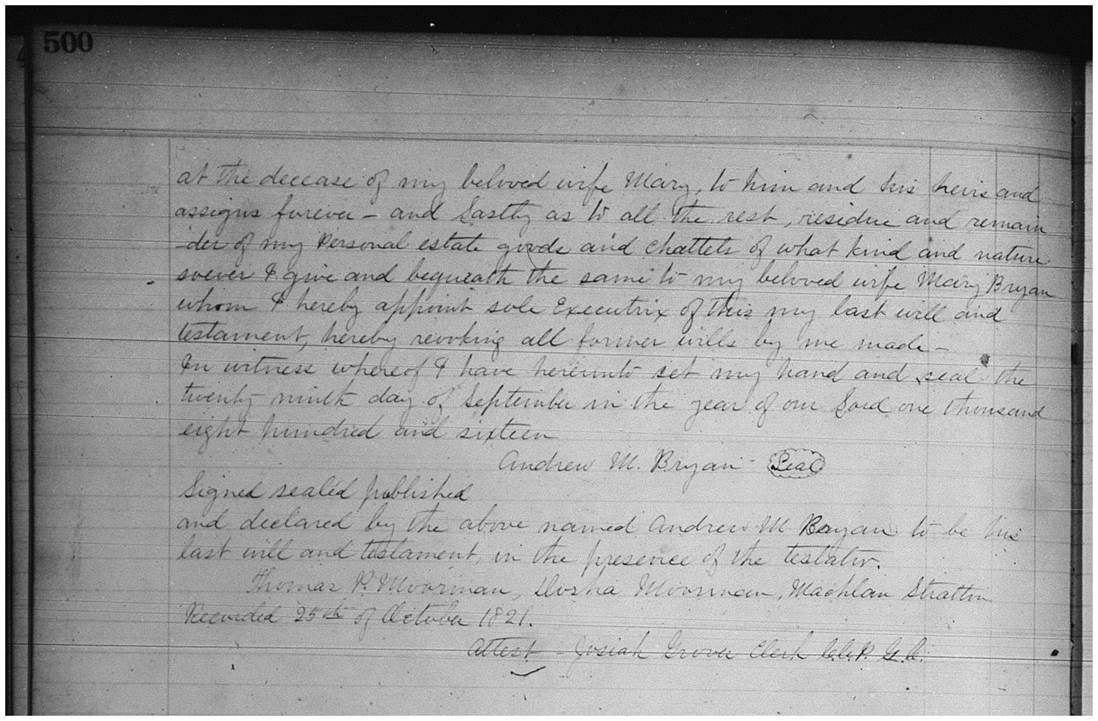 500
at the decease of my beloved wife Mary, to him and his heirs and
assigns forever – and Lastly as to all the rest, residue and remain
-der of my Personal estate goods and chattels of what kind and nature
soever I give and bequeath the same to my beloved wife Mary Bryan
whom I hereby appoint sole Executrix of this my last will and
testament, hereby revoking all former wills by me made –
In witness whereof I have hereunto set my hand and seal the
twenty ninth day of September in the year of our Lord one thousand
eight hundred and sixteen
Andrew M. Bryan Seal
Signed sealed published
and declared by the above named Andrew M Bryan to be his
last will and testament, in the presence of the testator.
Thomas P. Moorman, Moorman, Machlan Stratton
Recorded 25th of October 1821.
Attest – Josiah Grover Clerk C.C.P. G.C.